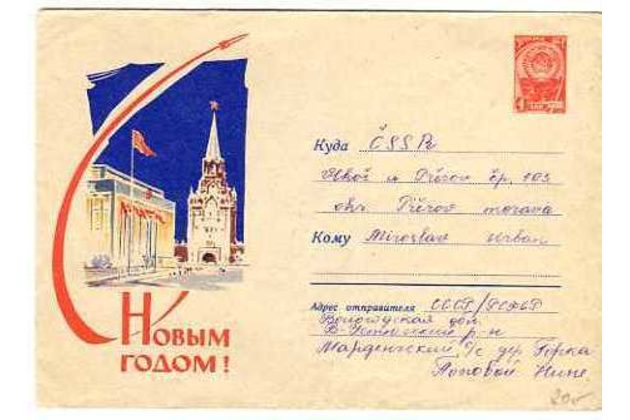 С Новым
годом!
4
Куда ČSSR
u Přerov čp. 103
okr. Přerov morava
Кому Miroslav Urban
Адрес отправителя СССР/РСФСР
Вологодская обл.
В-Устюгский р-н
Марденгский с/с дер Горка
Поповой Нине.